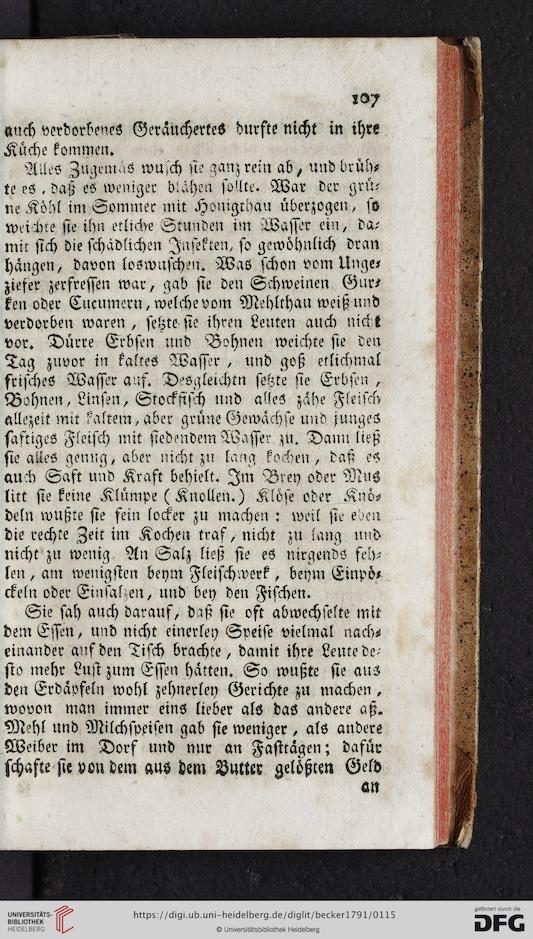 107
auch verdorbenes Geräuchertes durfte nicht in ihre
Küche kommen.
Alles Zugemüs wusch sie ganz rein ab, und brüh⸗
te es, daß es weniger blähen sollte. War der grü⸗
ne Köhl im Sommer mit Honigthau überzogen, so
weichte sie ihn etliche Stunden im Wasser ein, da⸗
mit sich die schädlichen Insekten, so gewöhnlich dran
hängen, davon loswuschen. Was schon vom Unge⸗
ziefer zerfressen war, gab sie den Schweinen Gur⸗
ken oder Cucumern, welche vom Mehlthau weiß und
verdorben waren, setzte sie ihren Leuten auch nicht
vor. Dürre Erbsen und Bohnen weichte sie den
Tag zuvor in kaltes Wasser, und goß etlichmal
frisches Wasser auf. Desgleichtn setzte sie Erbsen,
Bohnen, Linsen, Stockfisch und alles zähe Fleisch
allezeit mit kaltem, aber grüne Gewächse und junges
saftiges Fleisch mit siedendem Wasser zu. Dann ließ
sie alles genug, aber nicht zu lang kochen, daß es
auch Saft und Kraft behielt. Im Brey oder Mus
litt sie keine Klümpe (Knollen.) Klöse oder Knö⸗
deln wußte sie fein locker zu machen: weil sie eben
die rechte Zeit im Kochen traf, nicht zu lang und
nicht zu wenig. An Salz ließ sie es nirgends feh⸗
len, am wenigsten beym Fleischwerk, beym Einpö⸗
ckeln oder Einsalzen, und bey den Fischen.
Sie sah auch darauf, daß sie oft abwechselte mit
dem Essen, und nicht einerley Speise vielmal nach⸗
einander auf den Tisch brachte, damit ihre Leute de⸗
sto mehr Lust zum Essen hätten. So wußte sie aus
den Erdäpfeln wohl zehnerley Gerichte zu machen,
wovon man immer eins lieber als das andere aß.
Mehl und Milchspeisen gab sie weniger, als andere
Weiber im Dorf und nur an Fasttägen; dafür
schafte sie von dem aus dem Butter gelößten Geld
an
UNIVERSITÄTS-
BIBLIOTHEK
HEIDELBERG
https://digi.ub.uni-heidelberg.de/diglit/becker1791/0115
© Universitätsbibliothek Heidelberg
gefördert durch die
DFG